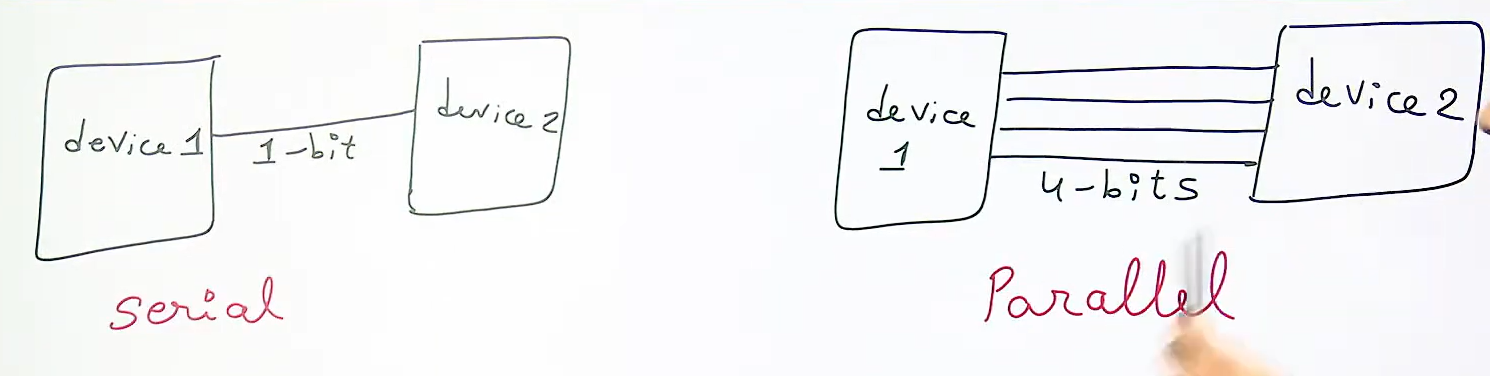 device 1
1-bit
device 2
serial
device
1
4-bits
device 2
Parallel